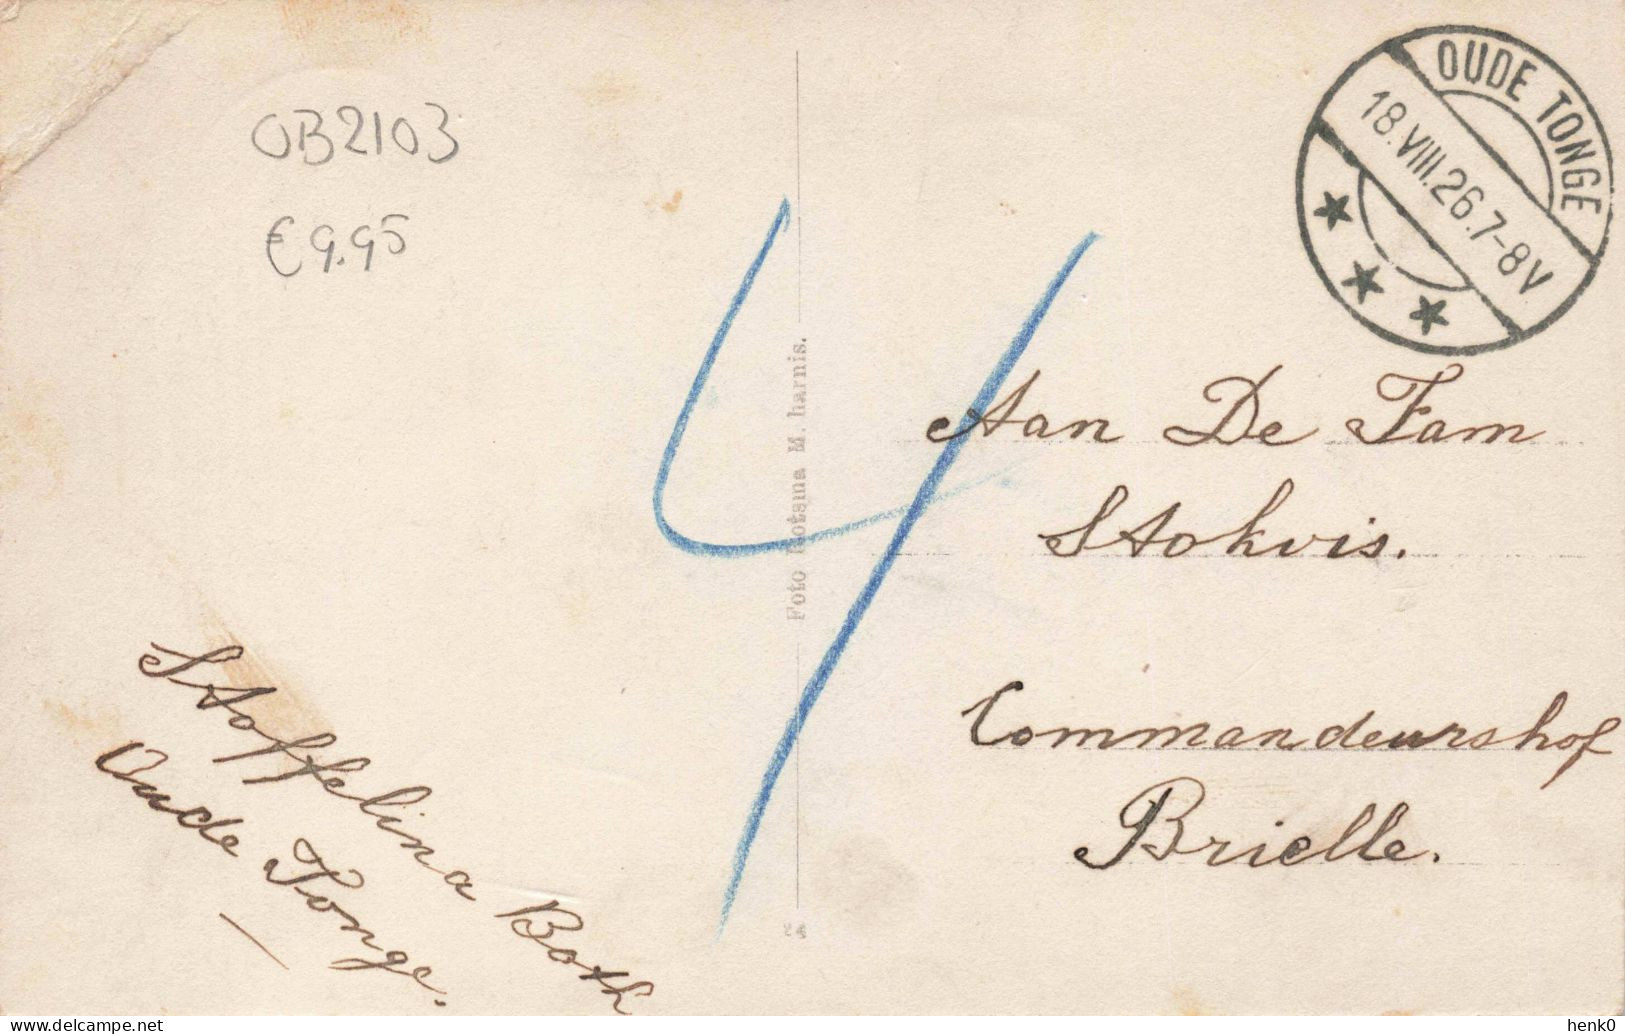 OB2103
€ 9.95
OUDE TONGE
18.VIII.26.7-8V
4
Foto M. harnis.
Aan De Fam
Stokvis.
Commandeurshof
Brielle.
Stoffelina Both
Oude Tonge.
henk0